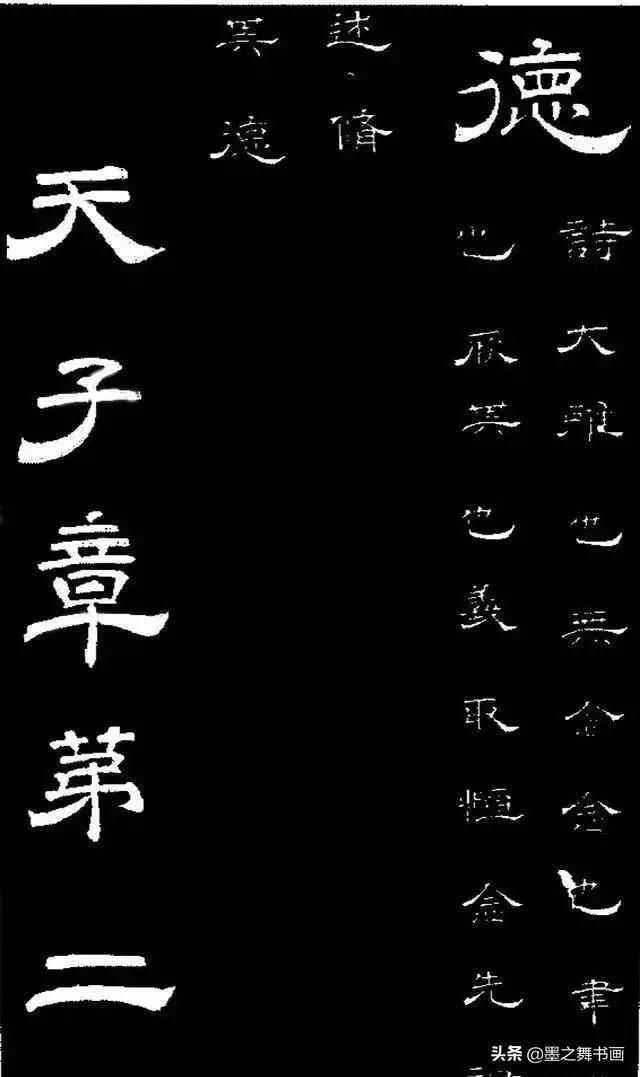 德
詩大雅也無念念也聿
也厥其也義取恒念先
述脩
其德
天子章第二
头条 @墨之舞书画